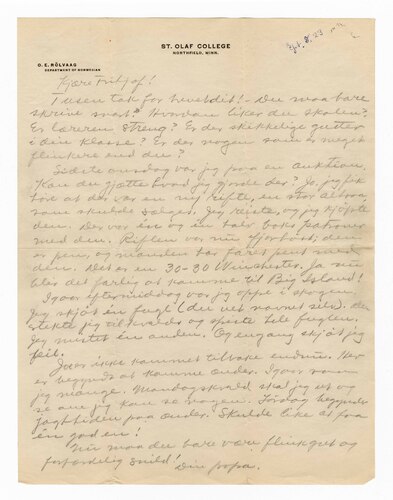 ST. OLAF COLLEGE
NORTHFIELD, MINN.
O. E. RÖLVAAG
DEPARTMENT OF NORWEGIAN
Kjære Fritjof!
Tusen tak for brevet dit! – Du maa bare
skrive snart! Hvordan liker du skolen?
Er læreren streng? Er der skikkelige gutter
i din klasse? Er der nogen som er meget
flinkere end du?
Sidste onsdag var jeg paa en auktion.
Kan du gjætte hvad jeg gjorde der? Jo, jeg fik
høre at der var en ny rifle, en stor
som skulde sælges. Jeg reiste, og jeg kjøpte
den. Der var en og en halv boks patroner
med den. Riflen var
er pen, og manden har faret pent med
den. Det er en 30-30 Winchester. Ja nu
blir det farlig at komme til Big Island!
Igaar eftermiddag var jeg oppe i skogen.
Jeg skjøt en fugl (du vet navnet selv). Den
stekte jeg til kvelds og spiste hele fuglen.
Jeg mistet én anden. Og en gang skjøt jeg
feil.
er ikke kommet tilbake endnu. Her
er begyndt at komme ænder. Igaar saa
jeg mange. Mandagskveld skal jeg ut og
se om jeg kan se nogen. Tirsdag begynder
jagttiden paa ænder. Skulde like at faa
én god en!
Nu maa du bare være flink gut og
forfærdelig snild! Din papa.